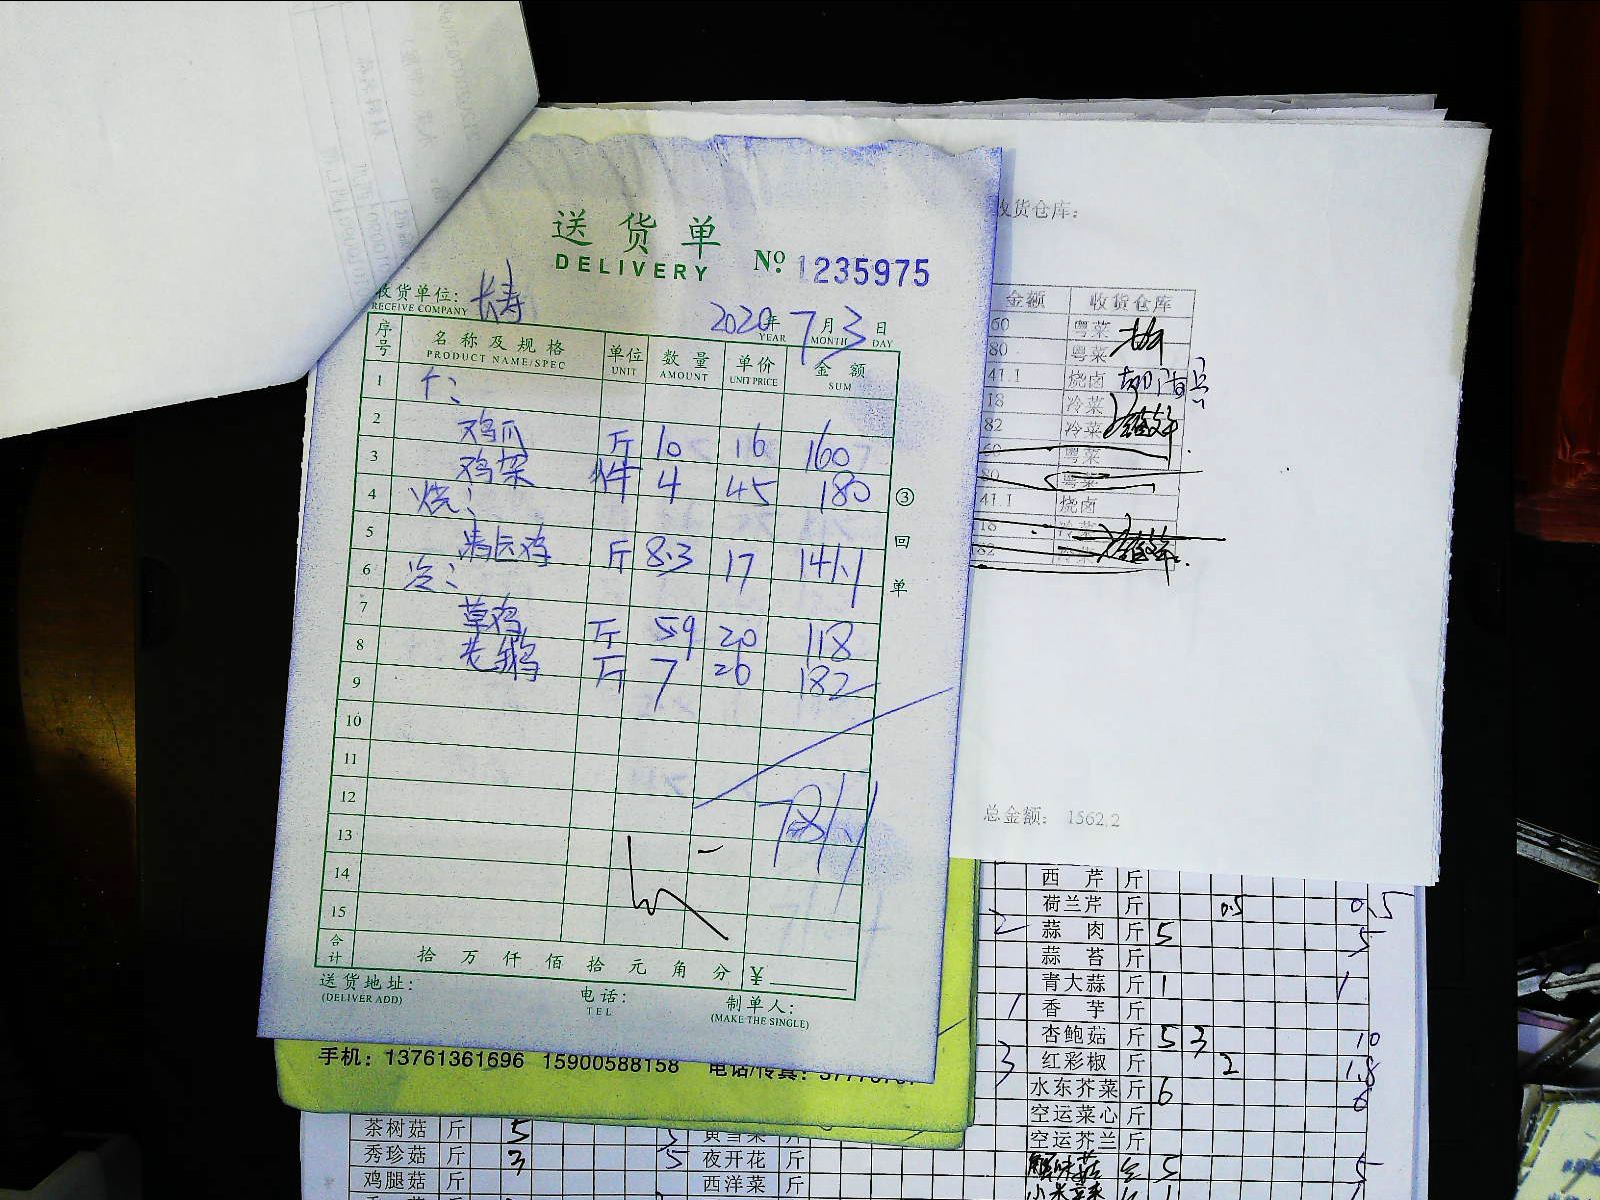 送货单
DELIVERY
№ 1235975
收货单位: 长寿
RECEIVE COMPANY
2020年 7月 3日
YEAR MONTH DAY
序号 名称及规格 单位 数量 单价 金额
PRODUCT NAME/SPEC UNIT AMOUNT UNIT PRICE SUM
1
2 鸡爪 斤 10 16 160
3 鸡架 件 4 45 180
4 烧:
5 斤 8.3 17 141.1
6 冷:
7 草鸡 斤 5.9 20 118
8 老鹅 斤 7 26 182
9
10
11
12
781.1
13
14
15
合计 拾 万 仟 佰 拾 元 角 分 ¥
送货地址:
(DELIVER ADD)
电话:
TEL
制单人:
(MAKE THE SINGLE)
③ 回单
手机: 13761361696 15900588158 电话/传真:
收货仓库:
金额 收货仓库
60 粤菜
80 粤菜
41.1 烧卤
18 冷菜
82 冷菜
60 粤菜
80 粤菜
41.1 烧卤
18 冷菜
82 冷菜
总金额: 1562.2
西芹 斤
荷兰芹 斤 0.5 0.5
2 蒜肉 斤 5 5
蒜苔 斤
青大蒜 斤 1 1
1 香芋 斤
杏鲍菇 斤 5 3 10
3 红彩椒 斤 2 1.8
水东芥菜 斤 6 6
空运菜心 斤
空运芥兰 斤
5 5
茶树菇 斤 5 5
秀珍菇 斤 3 5 夜开花 斤
鸡腿菇 斤 西洋菜 斤